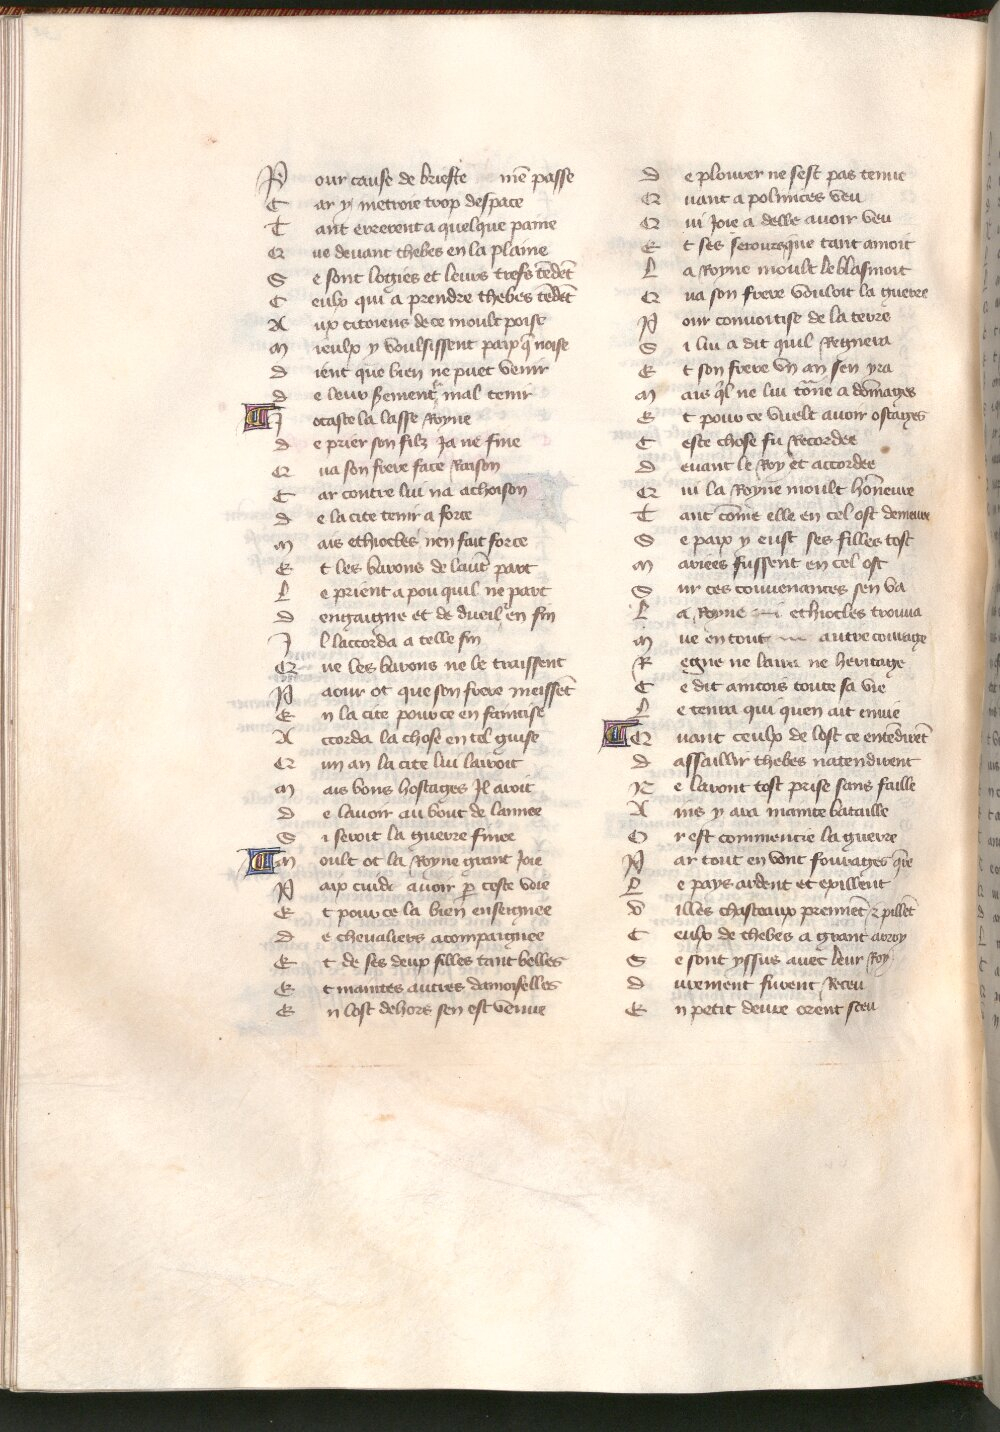 Pour cause de briefte mē passe
Car y metroie trop despace
Tant errerent a quelque paine
Que devant thebes en la plaine
Se sont logies et leurs trefs tēdēt
Ceulx qui a prendre thebes tēdēt
Aux citoiens de ce moult poise
Mieulx y voulsissent paix q̄ noise
Dient que bien ne puet venir
De leur serment mal tenir
Jocaste la lasse Royne
De prier son filz Ja ne fine
Qua son frere face Raison
Car contre lui na achoison
De la cite tenir a force
Mais ethiocles nen fait force
Et les barons de laut̄ part
Le prient a pou quil ne part
Dengaigne et de dueil en fin
Il laccorda a telle fin
Que les barons ne le traissent
Paour ot que son frere meissēt
En la cite pour ce en faintise
Accorda la chose en tel guise
Quun an la cite lui lairoit
Mais bons hostages Il avoit
De lavoir au bout de lannee
Si seroit la guerre finee
Moult ot la Royne grant Joie
Paix cuide avoir p̄ ceste voie
Et pour ce la bien enseignee
De chevaliers acompaignee
Et de ses deux filles tant belles
Et maintes autres damoiselles
En lost dehors sen est venue
De plourer ne sest pas tenue
Quant a polinices veu
Qui Joie a delle avoir veu
Et ses serours que tant amoit
La Royne moult le blasmoit
Qua son frere vouloit la guerre
Pour convoitise de la terre
Si lui a dit quil Regnera
Et son frere un an sen yra
Mais q̄l ne lui tōrne a dōmages
Et pour ce vuelt avoir ostages
Ceste chose fu Recordee
Devant le Roy et accordee
Qui la Royne moult hōneure
Tant cōme elle en cel ost demeure
Se paix y eust ses filles tost
Mariees fussent en cel ost
Sur ces couvenances sen va
La Royne ethiocles trouva
Mue en tout autre courage
Regne ne laira ne heritage
Ce dit aincois toute sa vie
Le tenra qui quen ait envie
Quant ceulx de lost ce entēdirēt
Dassaillir thebes natendirent
Ne lavont tost prise sans faille
Ains y ara mainte bataille
Or est commencie la guerre
Par tout en vont fourages q̄rre
Le pays ardent et exillent
Villes chasteaux prennēt ⁊ pillēt
Ceulx de thebes a grant arroy
Se sont yssus avec leur Roy
Durement furent Receu
En petit deure orent sceu